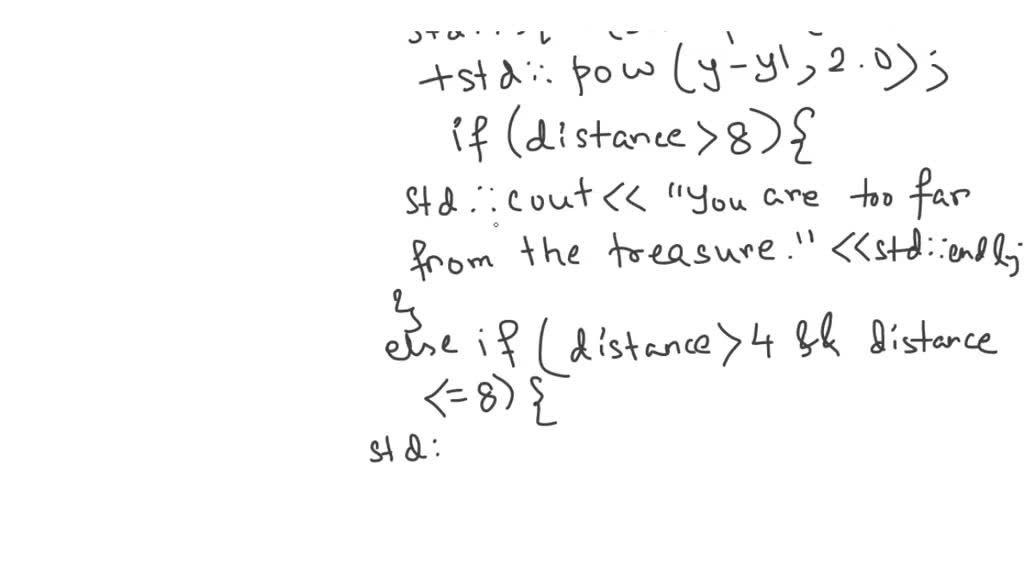 +std:: pow (y-y1, 2.0);
if (distance>8){
std::cout<< "You are too far
from the treasure." <<std::endl;
}
else if (distance>4 && distance
<=8) {
std: